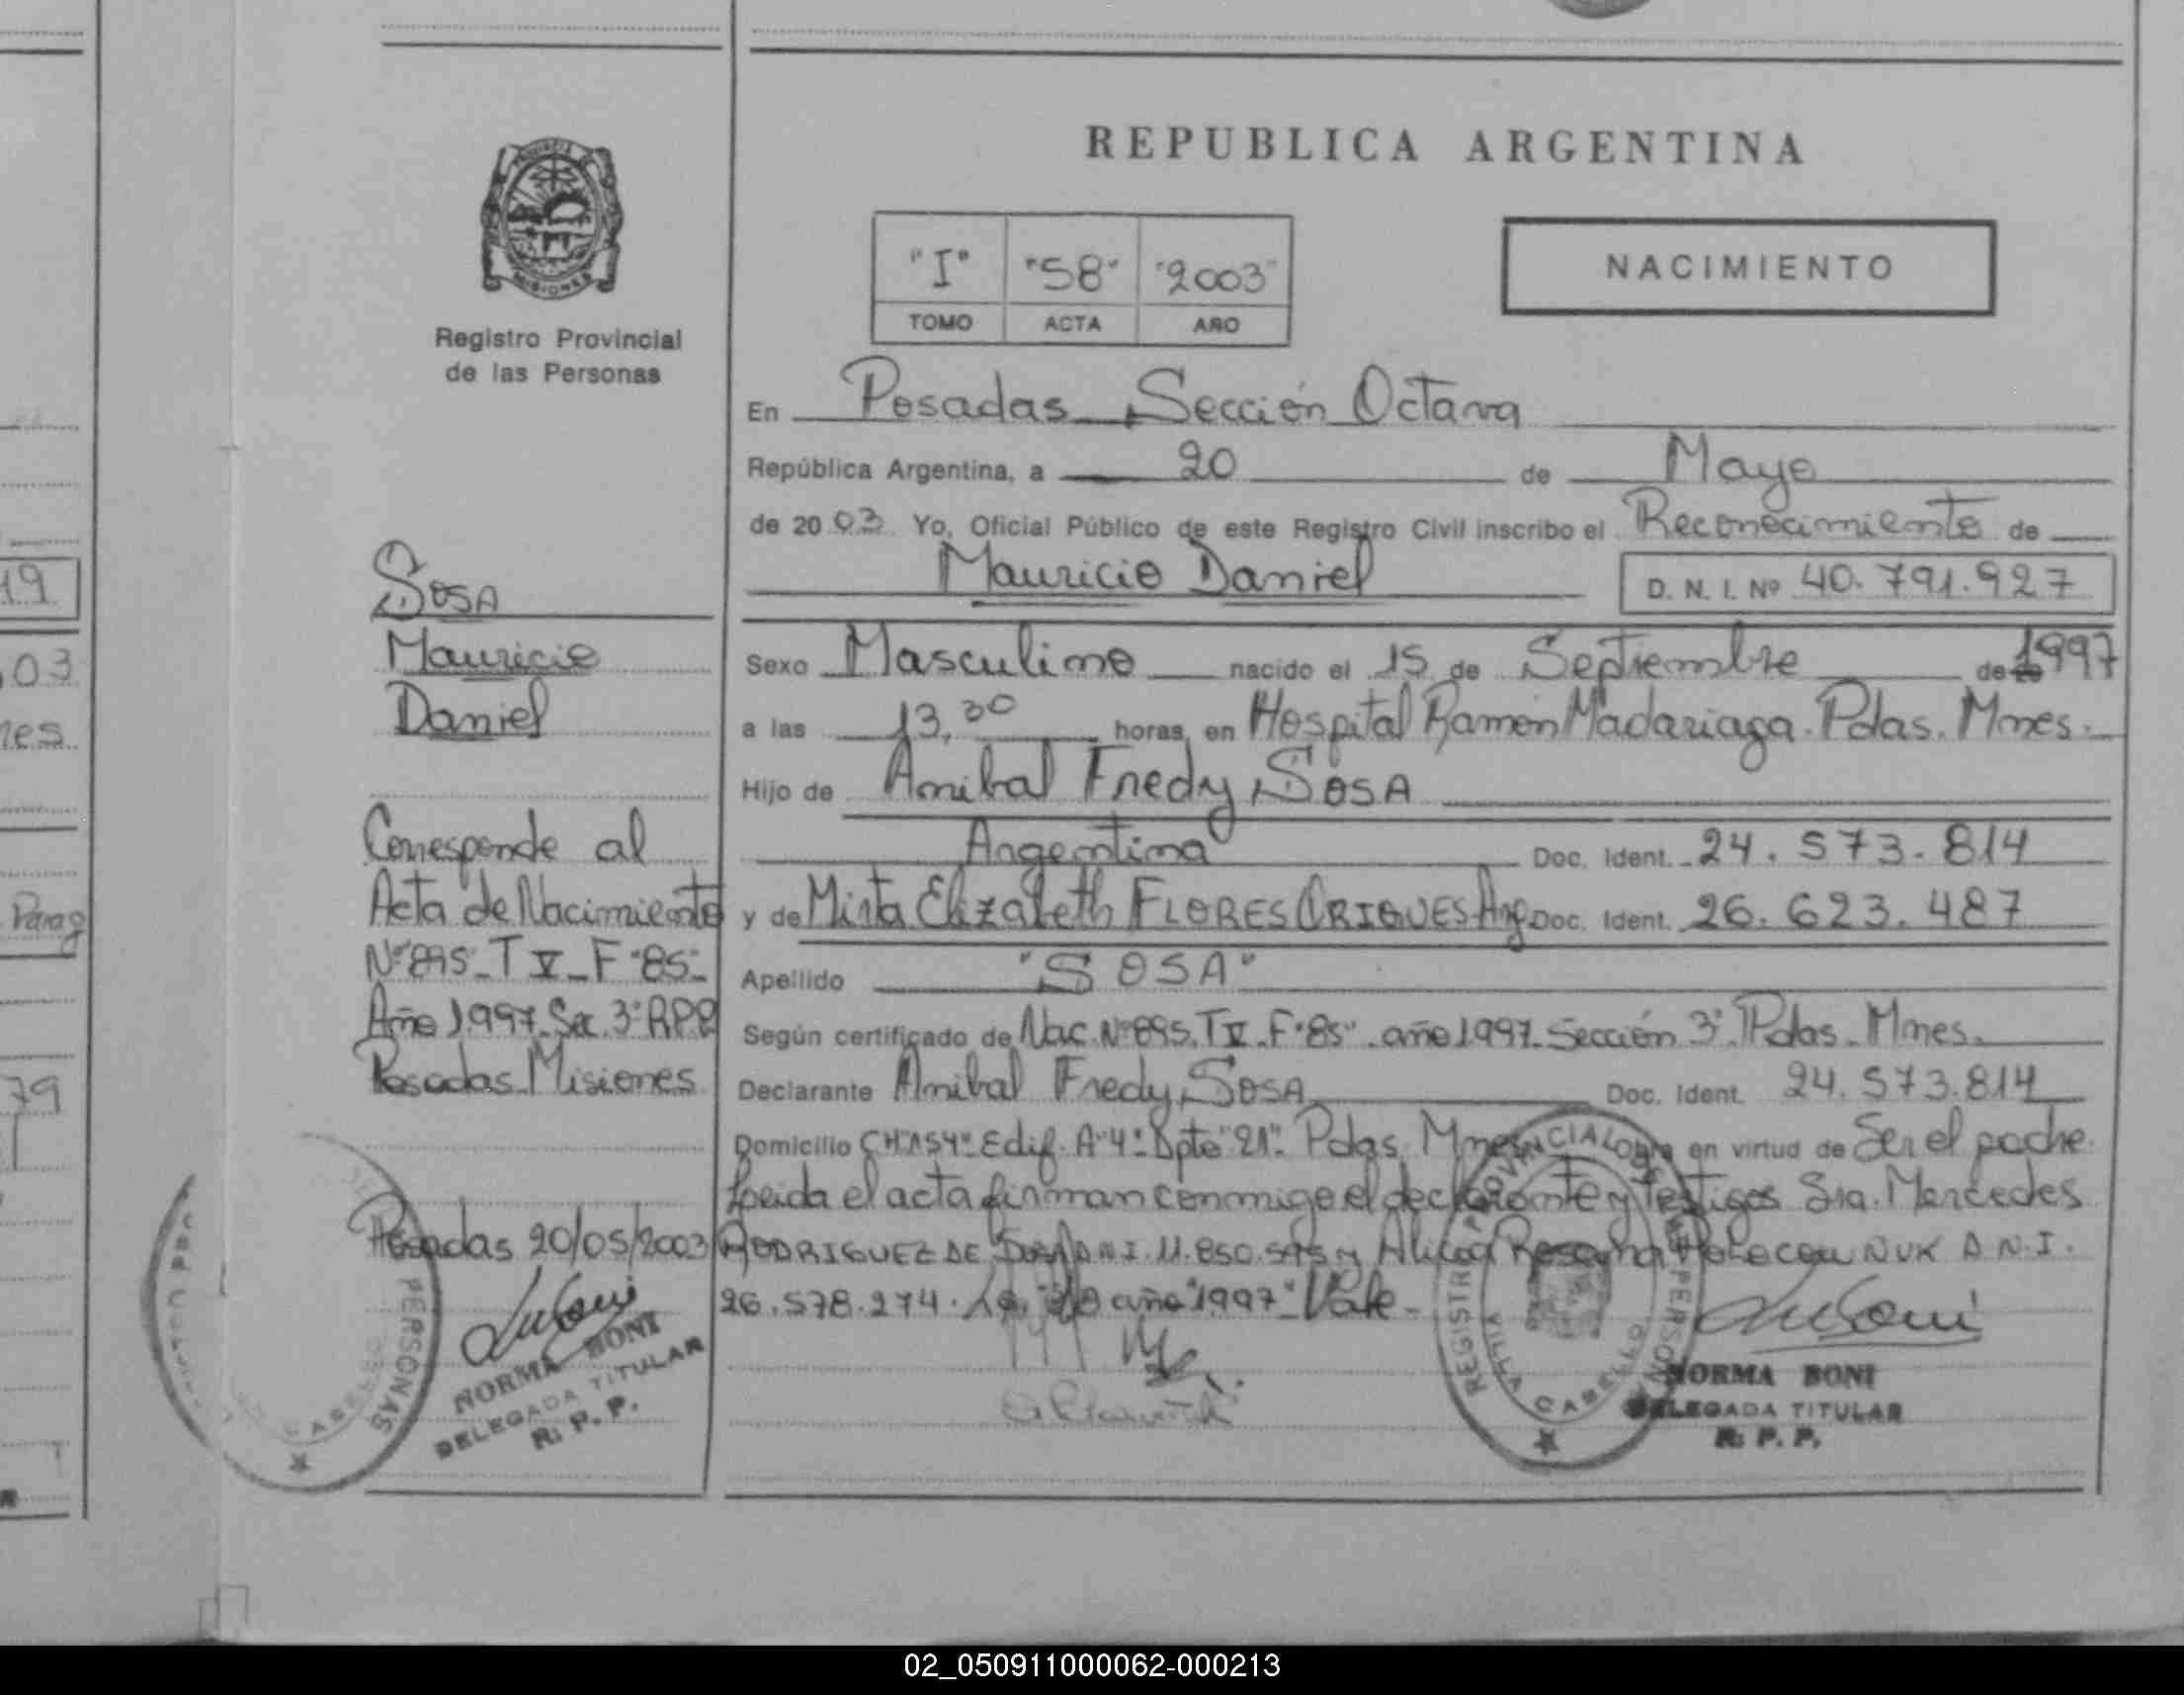 REPUBLICA ARGENTINA
PROVINCIA DE
MISIONES
Registro Provincial
de las Personas
"I" "58" "2003"
TOMO ACTA AÑO
NACIMIENTO
En Posadas Sección Octava
República Argentina, a 20 de Mayo
de 2003 Yo, Oficial Público de este Registro Civil inscribo el Reconocimiento de
Mauricio Daniel D. N. I. Nº 40.791.927
Sexo Masculino nacido el 15 de Septiembre de 1997
a las 13,30 horas, en Hospital Ramón Madariaga. Pdas. Mnes.
Hijo de Anibal Fredy SOSA
Argentina Doc. Ident. 24.573.814
y de Mirta Elizabeth FLORES ORIGUES Arg. Doc. Ident. 26.623.487
Apellido "SOSA"
Según certificado de Nac. Nº 895. T V. F "85". año 1997. Sección 3ª. Pdas. Mnes.
Declarante Anibal Fredy SOSA Doc. Ident. 24.573.814
Domicilio CH 154" Edif. A "4" Dpto "21". Pdas. Mnes. Obra en virtud de Ser el padre
Leida el acta firman conmigo el declarante y Testigos Sra. Mercedes
RODRIGUEZ DE SOSA D.N.I. 11.850.595 y Alicia NUK D.N.I.
26.578.274. año "1997" Vale
SOSA
Mauricio
Daniel
Corresponde al
Acta de Nacimiento
Nº 895 - T V - F "85"
Año 1997. Sec. 3ª R.P.P
Posadas Misiones
Posadas 20/05/2003
NORMA BONI
DELEGADA TITULAR
R. P. P.
NORMA BONI
DELEGADA TITULAR
R. P. P.
PERSONAS
19
03
nes
Parag
79
02_050911000062-000213